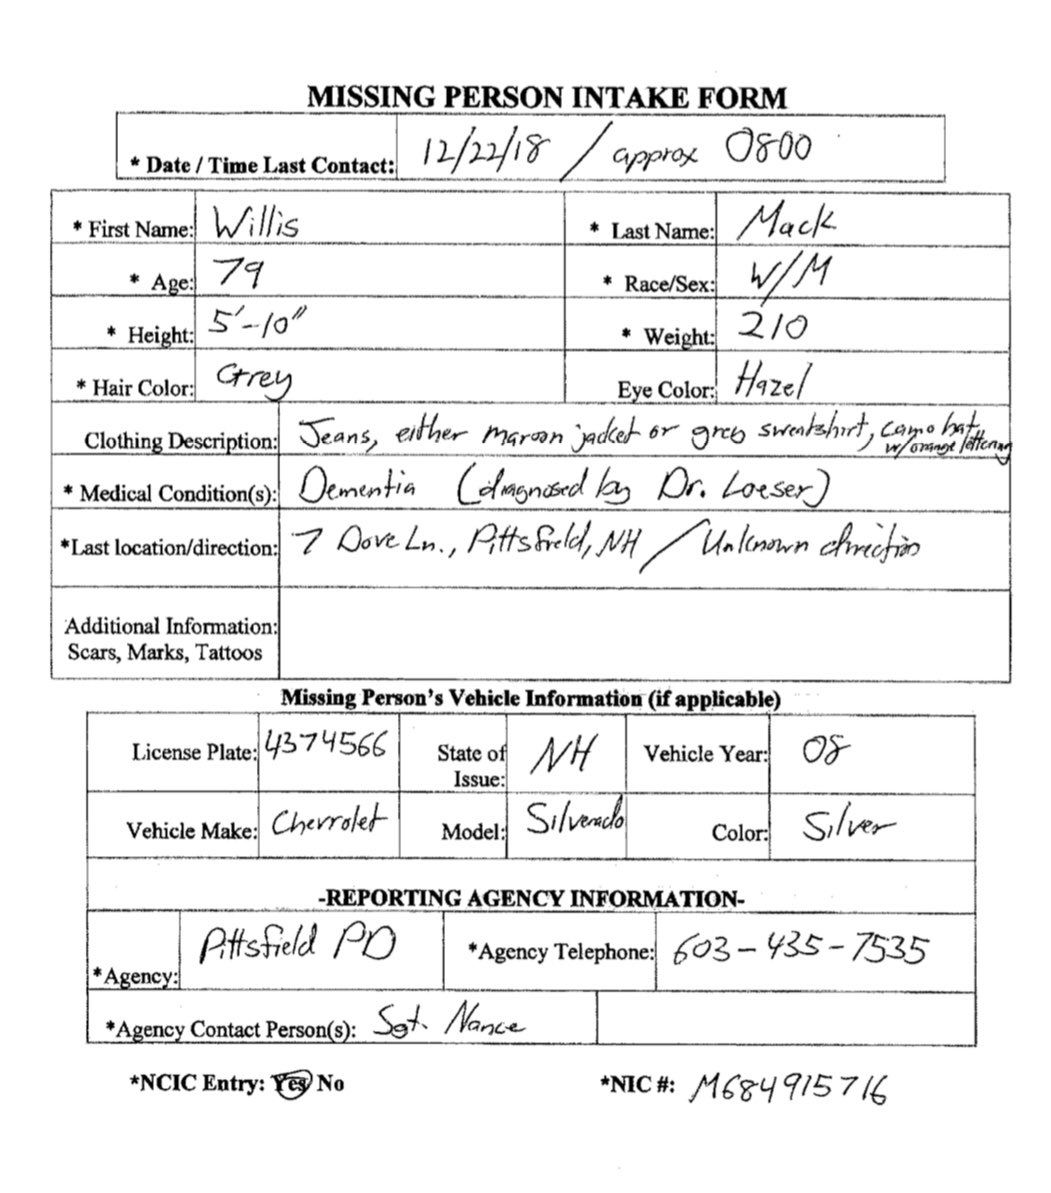 MISSING PERSON INTAKE FORM
* Date / Time Last Contact: 12/22/18 / approx 0800
* First Name: Willis * Last Name: Mack
* Age: 79 * Race/Sex: W/M
* Height: 5'-10" * Weight: 210
* Hair Color: Grey Eye Color: Hazel
Clothing Description: Jeans, either maroon jacket or grey sweatshirt, camo hat,
w/orange lettering
* Medical Condition(s): Dementia (diagnosed by Dr. Loeser)
*Last location/direction: 7 Dove Ln., Pittsfield, NH / Unknown direction
Additional Information:
Scars, Marks, Tattoos
Missing Person's Vehicle Information (if applicable)
License Plate: 4374566 State of Issue: NH Vehicle Year: 08
Vehicle Make: Chevrolet Model: Silverado Color: Silver
-REPORTING AGENCY INFORMATION-
*Agency: Pittsfield PD *Agency Telephone: 603-435-7535
*Agency Contact Person(s): Sgt. Nance
*NCIC Entry: Yes No *NIC #: M684915716